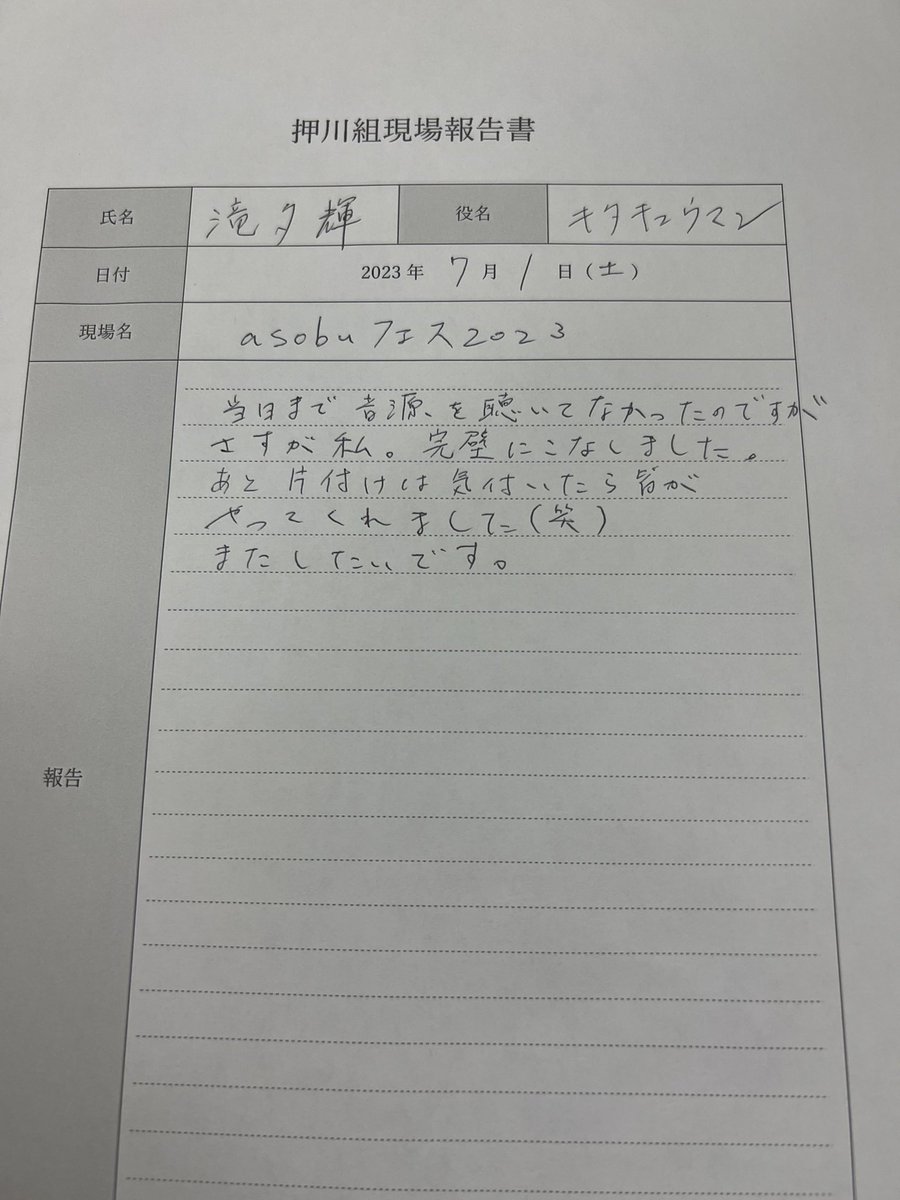 押川組現場報告書
氏名 滝夕輝 役名 キタキュウマン
日付 2023年 7月 1日(土)
現場名 asobuフェス2023
当日まで音源を聴いてなかったのですが
さすが私。完璧にこなしました。
あと片付けは気付いたら皆が
やってくれました(笑)
またしたいです。
報告